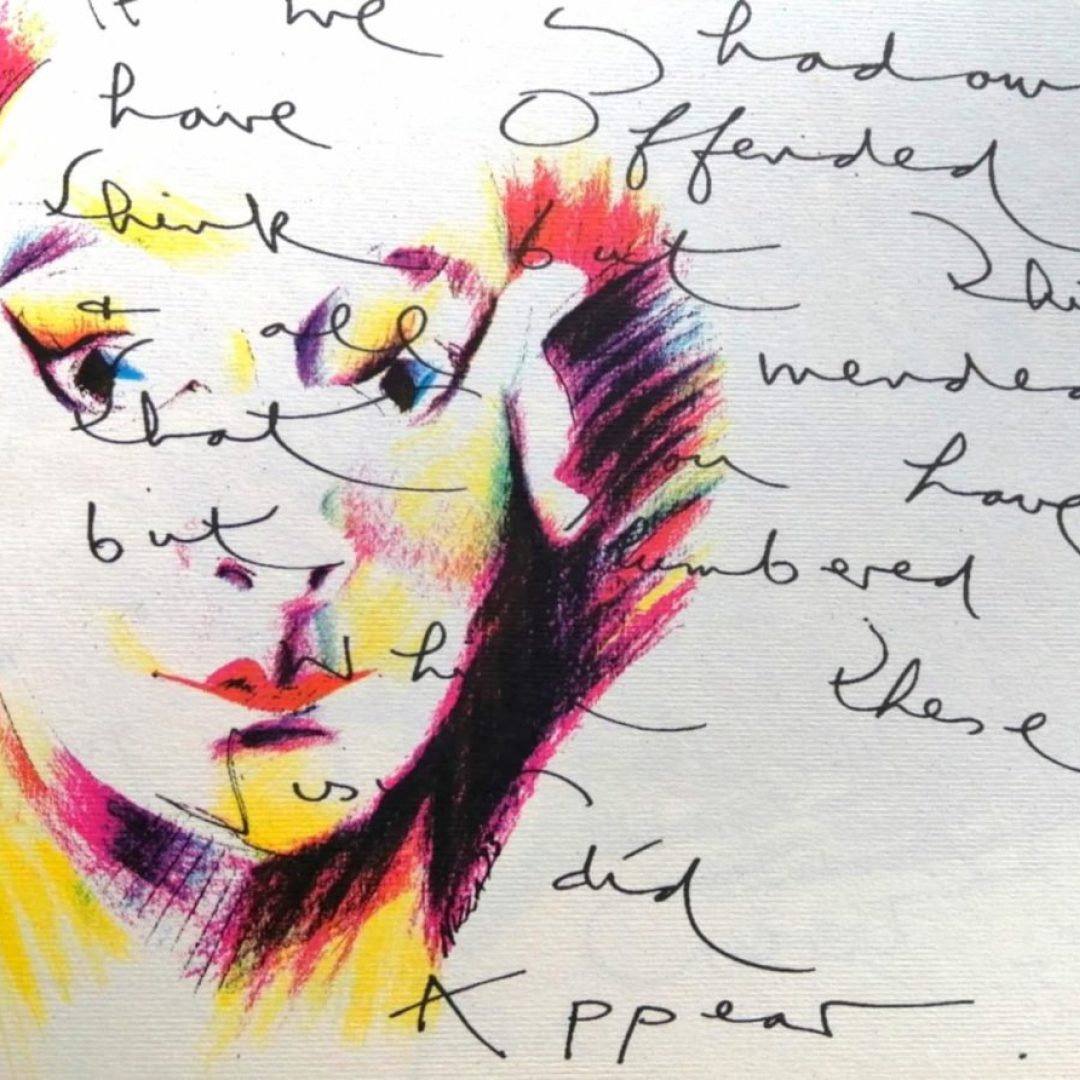 If we Shadow
have Offended
Think but thi
& all mended
that ou have
but lumbered
whi these
Visi
did
Appear.